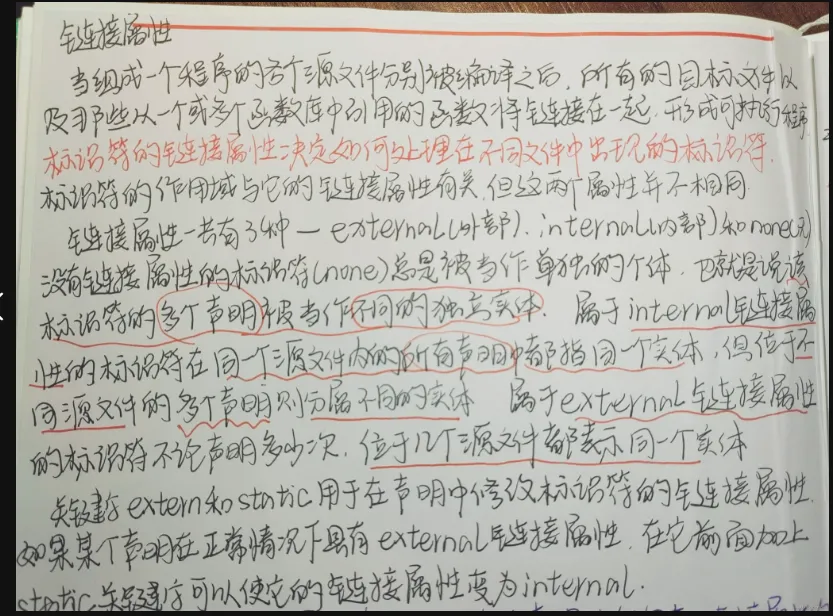 链接属性
当组成一个程序的各个源文件分别被编译之后，所有的目标文件以
及那些从一个或多个函数库中引用的函数将链接在一起，形成可执行程序
标识符的链接属性决定如何处理在不同文件中出现的标识符.
标识符的作用域与它的链接属性有关,但这两个属性并不相同
链接属性一共有3种—external(外部).internal(内部)和none(无)
没有链接属性的标识符(none)总是被当作单独的个体，也就是说该
标识符的多个声明被当作不同的独立实体. 属于internal链接属
性的标识符在同一个源文件内的所有声明中都指同一个实体,但位于不
同源文件的多个声明则分属不同的实体 属于external链接属性
的标识符不论声明多少次,位于几个源文件都表示同一个实体
关键字extern和static用于在声明中修改标识符的链接属性.
如果某个声明在正常情况下具有external链接属性,在它前面加上
static关键字可以使它的链接属性变为internal.